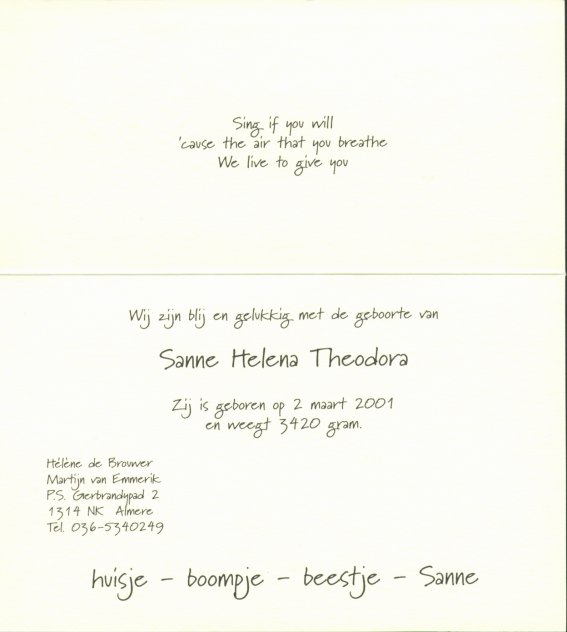 Sing if you will
'cause the air that you breathe
We live to give you
Wij zijn blij en gelukkig met de geboorte van
Sanne Helena Theodora
Zij is geboren op 2 maart 2001
en weegt 3420 gram.
Hélène de Brouwer
Martijn van Emmerik
P.S. Gerbrandypad 2
1314 NK Almere
Tel. 036-5340249
huisje - boompje - beestje - Sanne